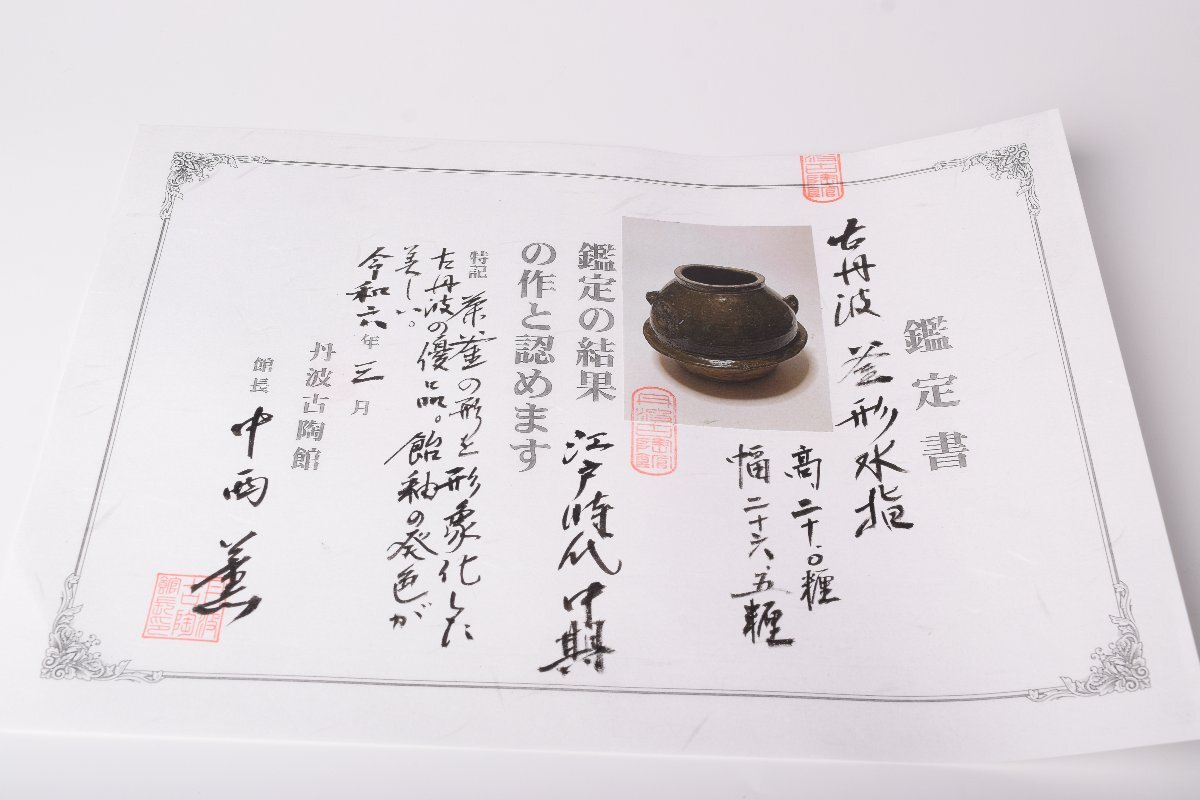 鑑定書
古丹波 釜形水指
高、二十、〇糎
幅 二十六、五糎
鑑定の結果 江戸時代 中期
の作と認めます
特記 茶釜の形を形象化した
古丹波の優品。飴釉の発色が
美しい。
令和六年三月
丹波古陶館
館長 中西 薫
丹波
古陶
館長印